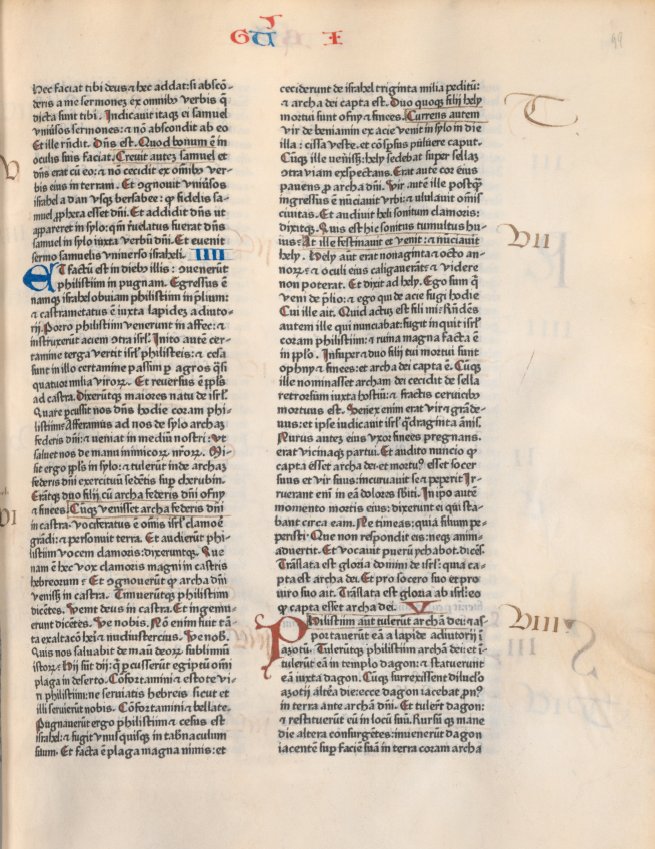 GŪ I
99
hec faciat tibi deus ⁊ hec addat: si absco̅-
deris a me sermonez ex omnibꝰ verbis q̅
dicta sunt tibi. Indicauit itaqꝫ ei samuel
vniu̅sos sermones: ⁊ no̅ abscondit ab eo
Et ille rn̅dit. Dn̅s est. Quod bonum e̅ in
oculis suis faciat. Creuit autez samuel et
dn̅s erat cu̅ eo: ⁊ no̅ cecidit ex omibꝰ ver-
bis eius in terram. Et ꝯgnouit vniu̅sus
israhel a dan vsqꝫ bersabee: ꝙ fidelis sa-
muel ꝓpheta esset dn̅i. Et addidit dn̅s ut
appareret in sylo: qm̅ reuelatus fuerat dn̅s
samuel in sylo iuxta verbu̅ dn̅i. Et euenit
sermo samuelis vniuerso israheli. IIII
Et factu̅ est in diebꝰ illis: ꝯuenerūt
philistiim in pugnam. Egressus e̅
namqꝫ israhel obuiam philistiim in p̅lium:
⁊ castrametatus e̅ iuxta lapidez adiuto-
rij. Porro philistiim venerunt in affec: ⁊
instruxerūt aciem ꝯtra isrl̅. Inito aute̅ cer-
tamine terga vertit isrl̅ philisteis: ⁊ cesa
sunt in illo certamine passim ꝑ agros q̅si
quatuor milia viroꝝ. Et reuersus e̅ ppl̅s
ad castra. Dixerūtqꝫ maiores natu de isrl̅.
Quare ꝑcussit nos dn̅s hodie coram phi-
listiim? Afferamus ad nos de sylo archaz
federis dn̅i: ⁊ veniat in mediu̅ nostri: vt
saluet nos de manu inimicoꝝ nr̅oꝝ. Mi-
sit ergo ppl̅s in sylo: ⁊ tulerūt inde archaz
federis dn̅i exercituu̅ sede̅tis suꝑ cherubin.
Era̅tqꝫ duo filij cu̅ archa federis dn̅i ofny
⁊ finees. Cūqꝫ venisset archa federis dn̅i
in castra: vociferatus e̅ om̅is isrl̅ clamoe̅
gra̅di: ⁊ personuit terra. Et audierūt phi-
listiim vocem clamoris: dixeruntqꝫ. Que
nam e̅ hec vox clamoris magni in castris
hebreorum? Et ꝯgnouerūt ꝙ archa dn̅i
veniss̅ in castra. Timuerūtqꝫ philistiim
dice̅tes. Venit deus in castra. Et ingemu-
erunt dice̅tes. Ve nobis. No̅ enim fuit ta̅-
ta exaltaco̅ heri ⁊ nudiustercius. Ve nob̅.
Quis nos saluabit de manu̅ deoꝝ sublimiū
istoꝝ? Hij su̅t dij: q̅ ꝑcusserūt egiptu̅ omi̅
plaga in deserto. Co̅fortamini ⁊ estote vi-
ri philistiim: ne seruiatis hebreis sicut et
illi seruierūt nobis. Co̅fortamini ⁊ bellate.
Pugnauerūt ergo philistiim ⁊ cesus est
israhel: ⁊ fugit vnusquisqꝫ in tab̅naculum
suum. Et facta e̅ plaga magna nimis: et
ceciderunt de israhel triginta milia peditu̅:
⁊ archa dei capta est. Duo quoqꝫ filij hely
mortui sunt ofny ⁊ finees. Currens autem
vir de beniamin ex acie venit in sylo in die
illa: scissa veste: et co̅sꝑsus puluere caput.
Cūqꝫ ille veniss̅: hely sedebat super sellaz
ꝯtra viam exspectans. Erat aute̅ cor eius
pauens ꝓ archa dn̅i. Vir aute̅ ille postqꝫ̅
ingressus e̅ nu̅ciauit vrbi: ⁊ vlulauit om̅is
ciuitas. Et audiuit heli sonitum clamoris:
dixitqꝫ. Quis est hic sonitus tumultus hu-
ius? At ille festinauit et venit: ⁊ nu̅ciauit
hely. Hely aut̅ erat nonaginta ⁊ octo an-
noꝝ: ⁊ oculi eius caligauera̅t: ⁊ videre
non poterat. Et dixit ad hely. Ego sum q̅
veni de p̅lio: ⁊ ego qui de acie fugi hodie
Cui ille ait. Quid actu̅ est fili mi? Rn̅de̅s
autem ille qui nunciabat: fugit inquit isrl̅
coram philistiim: ⁊ ruina magna facta e̅
in ppl̅o. Insuper ⁊ duo filij tui mortui sunt
ophny ⁊ finees: et archa dei capta e̅. Cūqꝫ
ille nominasset archam dei: cecidit de sella
retrorsum iuxta hostiu̅: ⁊ fractis ceruicibꝰ
mortuus est. Senex enim erat vir ⁊ gra̅de-
uus: et ipse iudicauit isrl̅ q̅draginta a̅nis.
Nurus autez eius vxor finees pregnans
erat vicinaqꝫ partui. Et audito nuncio ꝙ
capta esset archa dei ⁊ mortuꝰ esset socer
suus et vir suus: incuruauit se ⁊ peperit. Ir-
ruerant eni̅ in ea̅ dolores sbiti. In ipo aute̅
momento mortis eius: dixerunt ei qui sta-
bant circa eam. Ne timeas: quia filium pe-
peristi. Que non respondit eis: neqꝫ anim-
aduertit. Et vocauit pueru̅ ychabot. dice̅s.
Tra̅slata est gloria domini de isrl̅: quia ca-
pta est archa dei. Et pro socero suo et pro
uiro suo ait. Tra̅slata est gloria ab isrl̅: eo
ꝙ capta esset archa dei. V
Philistiim aut̅ tulerūt archa̅ dei: ⁊ as-
portauerūt ea̅ a lapide adiutorij i̅
azotu̅. Tulerūtqꝫ philistiim archa̅ dei: et i̅-
tulerūt ea̅ in templo dagon: ⁊ statuerunt
ea̅ iuxta dagon. Cūqꝫ surrexissent diluclo
azotij alte̅a die: ecce dagon iacebat ꝓnꝰ
in terra ante archa̅ dn̅i. Et tuleru̅t dagon:
⁊ restituerūt cu̅ in locu̅ suu̅. Rursu̅ qꝫ mane
die altera consurge̅tes: inuenerūt dagon
iacente̅ suꝑ facie̅ sua̅ in terra coram archa
VII
VIII